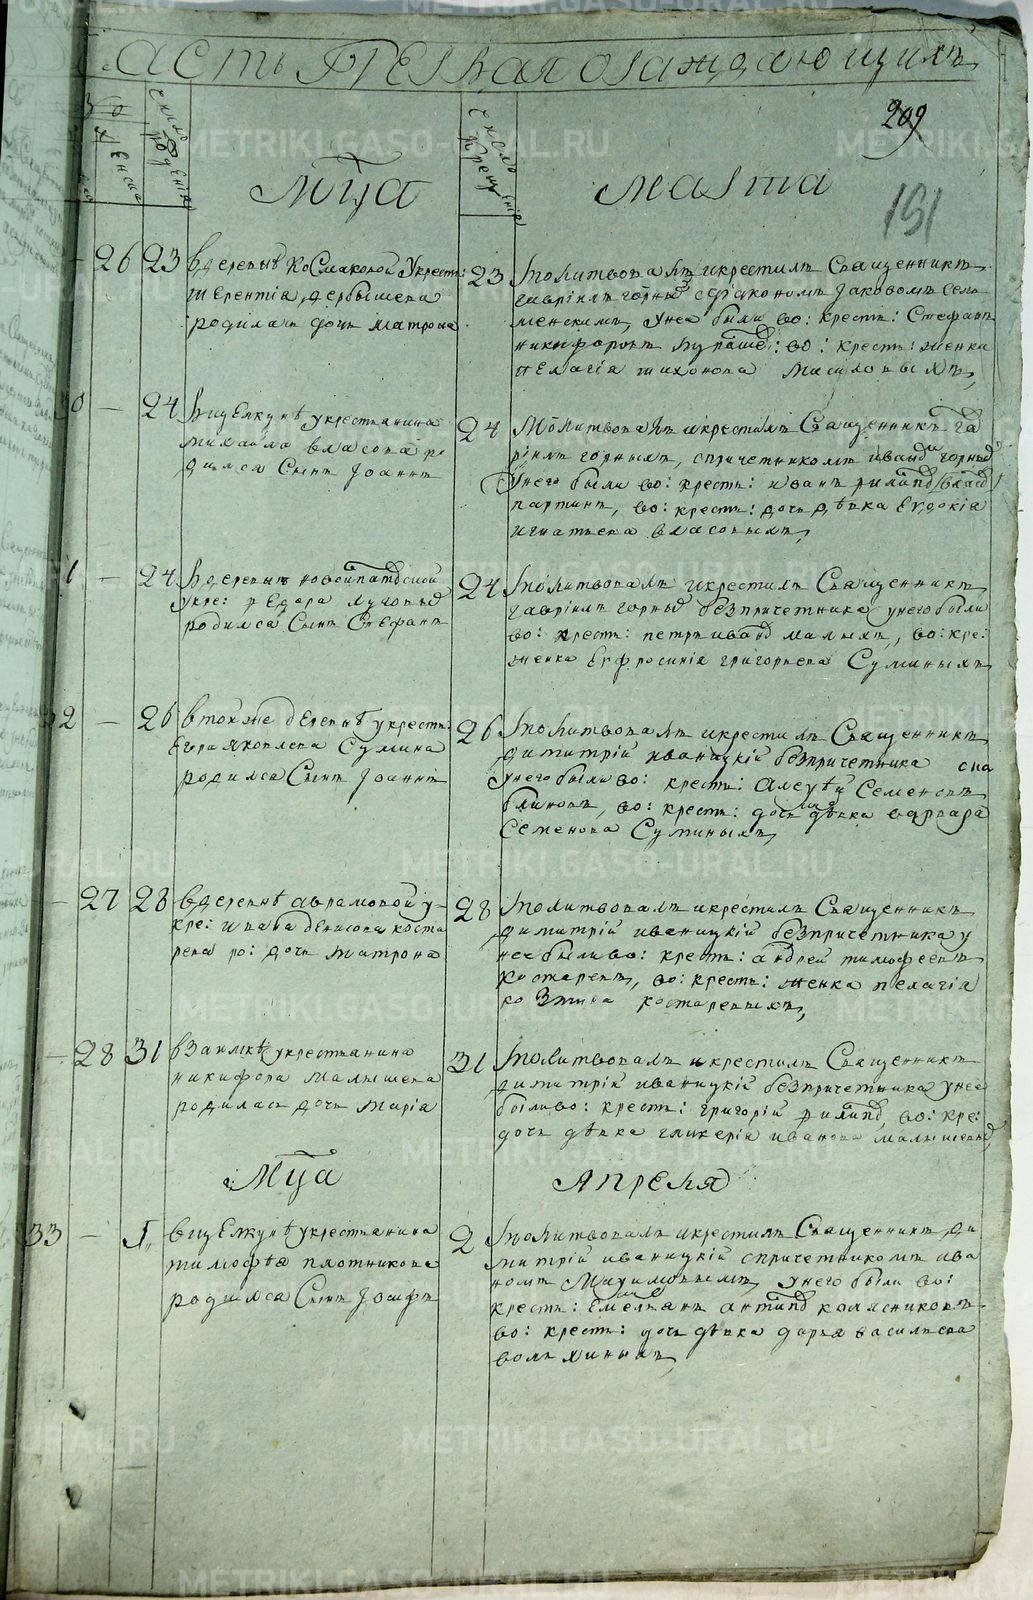 Часть первая ораждающихъ
женска
209
191
Мца марта
26 23 в деревнѣ Космаковой у крестн:
терентїа дербышева
родилась дочь матрона
23 молитвовалъ и крестилъ Священникъ
гаврїилъ горный с дїакономъ Iаковомъ
менскимъ, у нея были во: крестн: Стефанъ
никифоровъ во: крестн: женка
пелагїа тихонова
30 – 24 в щелкунѣ у крестьянина
михаила власова ро
дился Сынъ Iоаннъ
24 Молитвовалъ и крестилъ Священникъ га
врїилъ горныхъ, спричетникомъ горный
у него были во: крестн: иванъ
партинъ, во: крестн: дочь дѣвка Евдокїа
игнатьева власовыхъ
1 – 24 в деревнѣ новоипатовской
у кре: федора луговых
родился Сынъ Стефанъ
24 молитвовалъ и крестилъ Священникъ
гаврїилъ горный безпричетника у него были
во: крестн: петръ иванов малыхъ, во: кре:
женка Евфросинїа григорьева Суминыхъ
32 – 26 в той же деревнѣ у крестн:
Егора яковлева Сумина
родился Сынъ Iоаннъ
26 молитвовалъ и крестилъ Священникъ
димитрїй иваницкїй безпричетника
у него были во: крестн: Алеѯѣй Семеновъ
блиновъ, во: крестн: дочь дѣвка варвара
Семенова Суминыхъ
– 27 28 в деревнѣ аврамовой у
кре: ивана денисова коста
рева ро: дочь матрона
28 молитвовалъ и крестилъ Священникъ
димитрїй иваницкїй безпричетника у
нее были во: крестн: андрей тимофеевъ
костаревъ, во: крестн: женка пелагїа
козмина костаревыхъ
– 28 31 в заимкѣ у крестьянина
никифора малышева
родилась дочь марїа
31 молитвовалъ и крестилъ Священникъ
димитрїй иваницкїй безпричетника у нее
были во: крестн: григорїй филипов, во: кре:
дочь дѣвка гликерїа иванова малышевых
Мца Апреля
33 – 1 в щелкунѣ у крестьянина
тимофѣа плотникова
родился Сынъ Iосифъ
2 молитвовалъ и крестилъ Священникъ ди
митрїй иваницкїй спричетникомъ ива
номъ у него были во:
крестн: Емельянъ антипов колясниковъ
во: крестн: дочь дѣвка дарья васильева
вольхиныхъ
METRIKI.GASO-URAL.RU